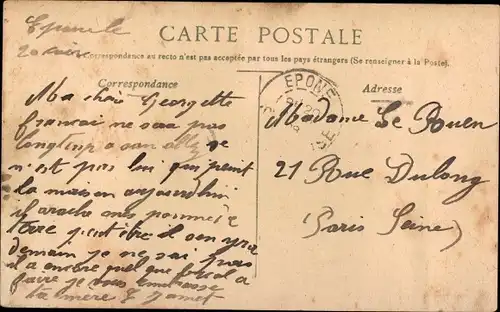 Epone le
CARTE POSTALE
La Correspondance au recto n'est pas acceptée par tous les pays étrangers (Se renseigner à la Poste).
Correspondance
Adresse
EPONE
Ma chère Georgette
francois ne sera pas
longtemp a san aller je
n'est pas lui qui peint
la maison aujourdhui
il arache mes pomme de
terre peut être il son ira
demain je ne sai pas
il a encore quel que
faire je vous embrasse
ta mere
Madame Le Rouen
21 Rue Dulong
(Paris Seine)